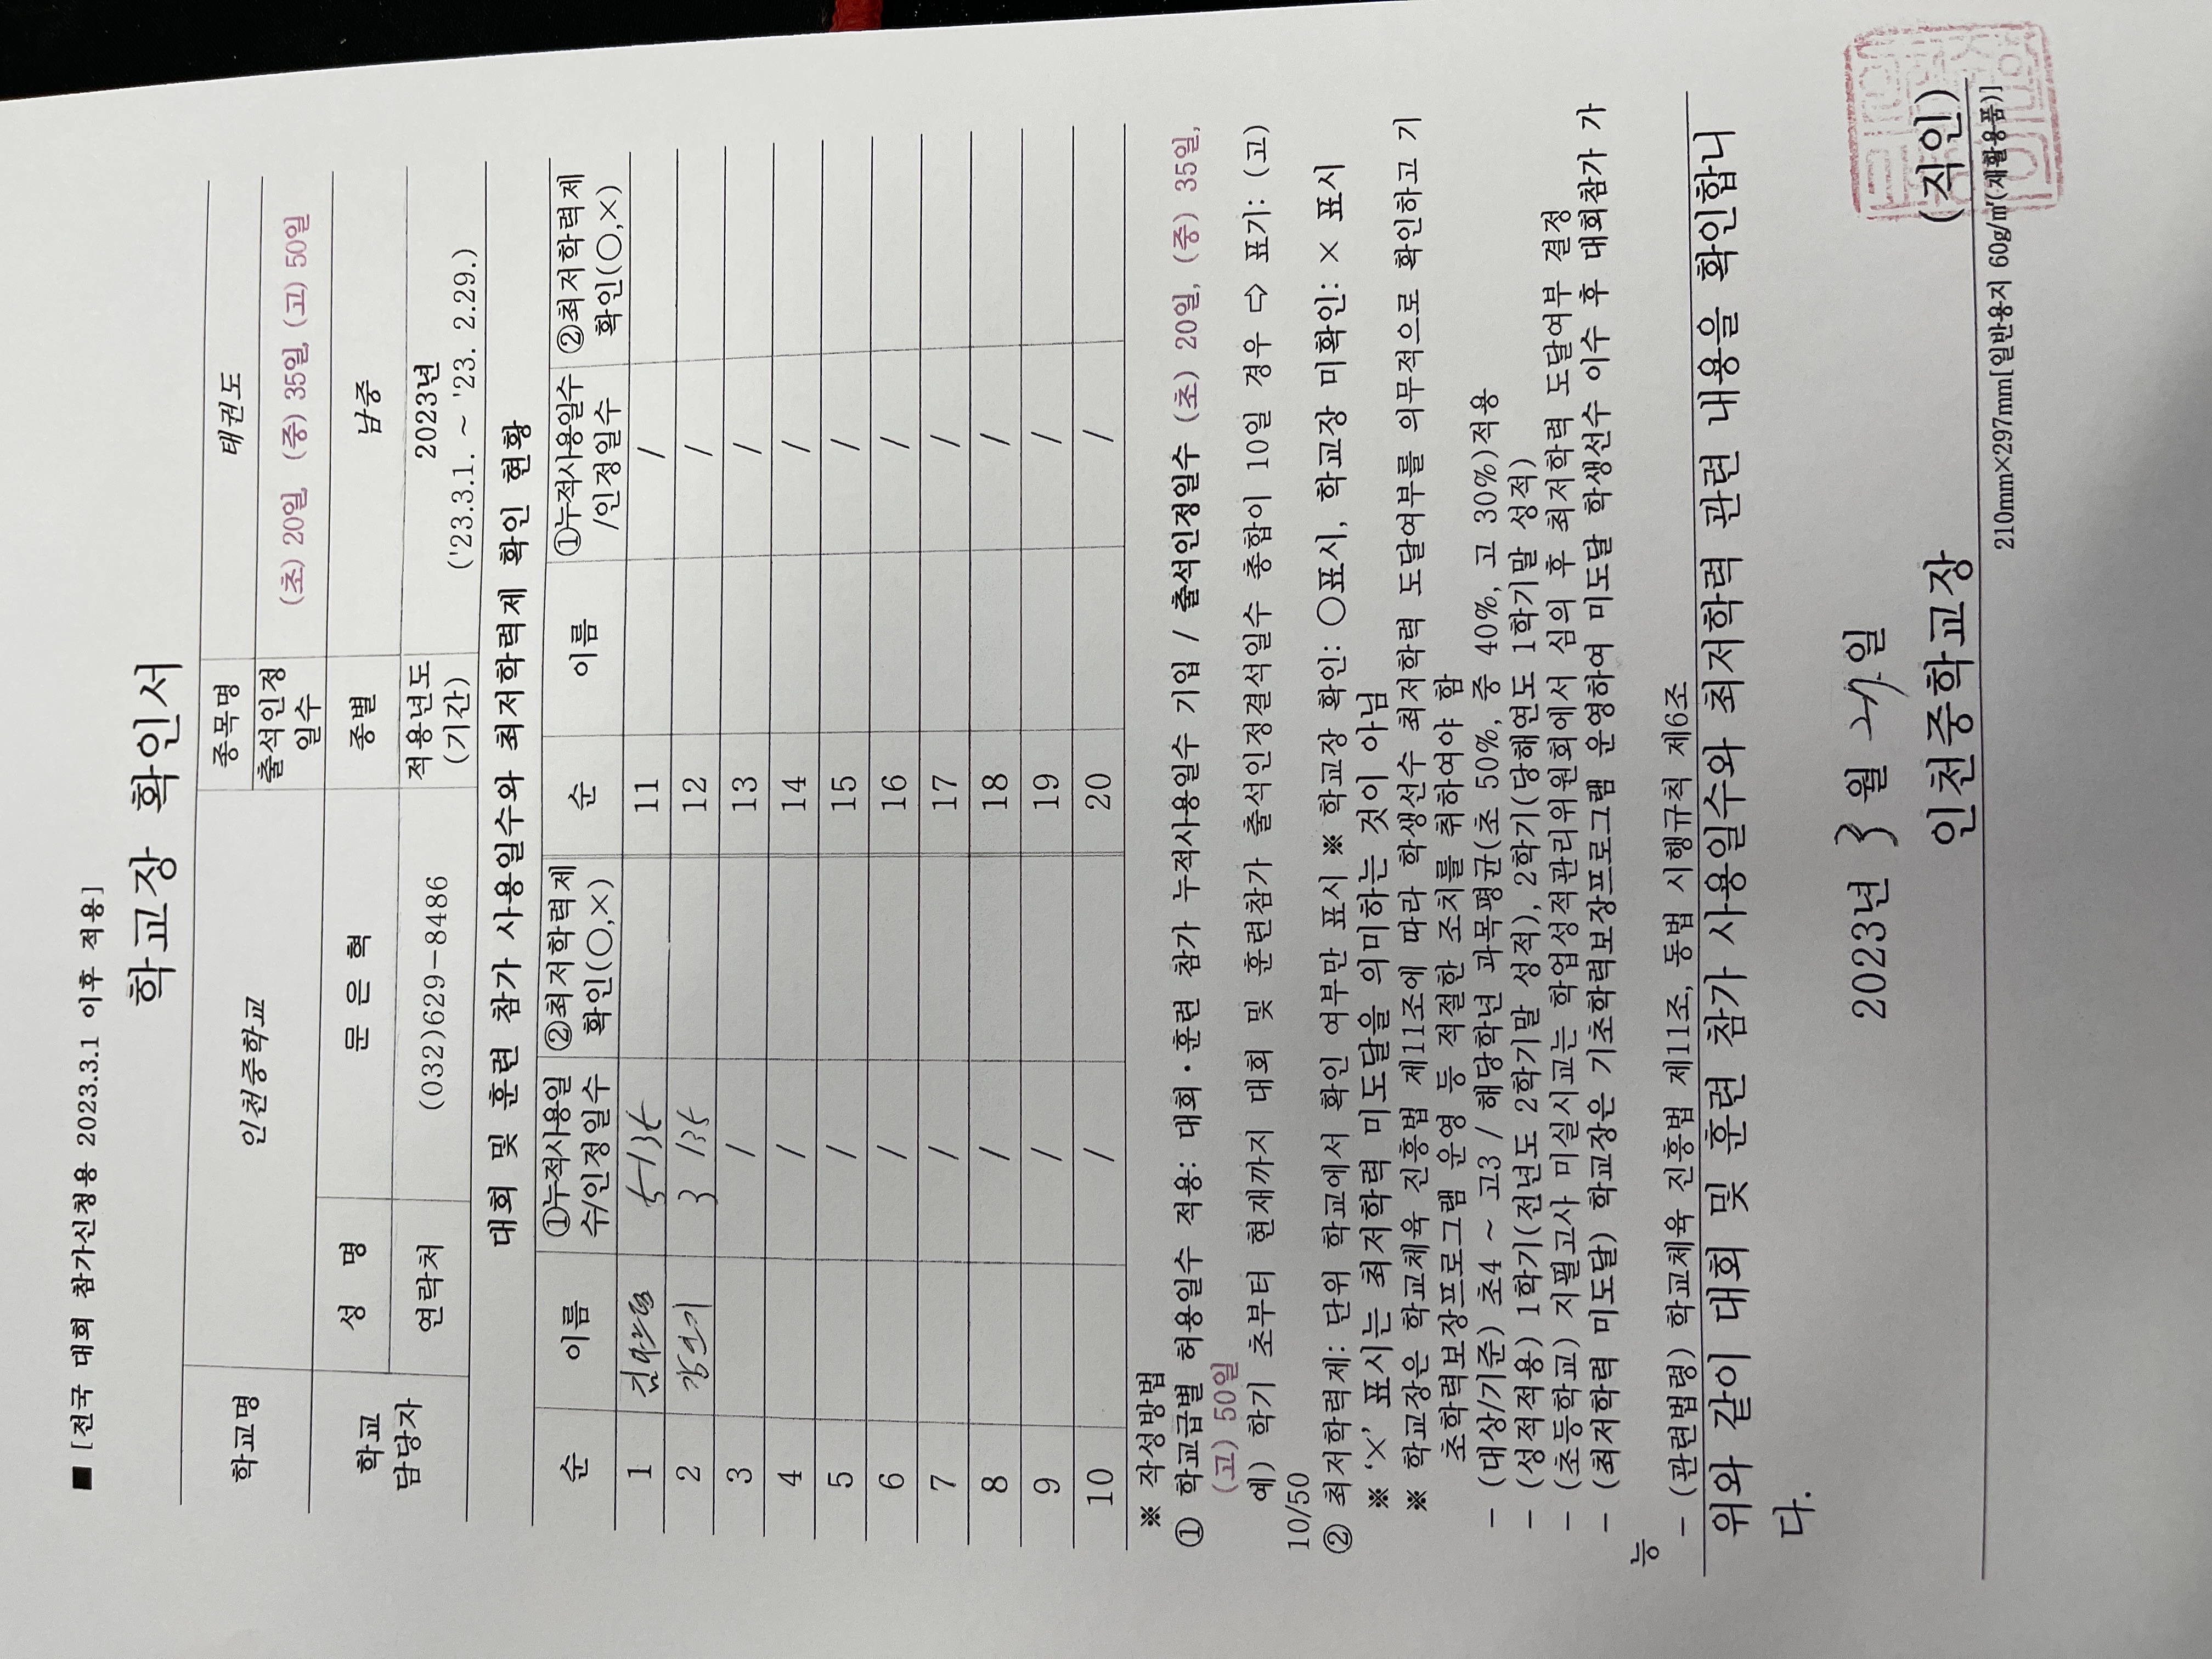 ■ [전국 대회 참가신청용 2023.3.1 이후 적용]
학교장 확인서
학교명 인천중학교 종목명 태권도
출석인정일수 (초) 20일, (중) 35일, (고) 50일
학교 담당자 성 명 문 은 혁 종별 남중
연락처 (032)629-8486 적용년도 (기간) 2023년 ('23.3.1. ~ '23. 2.29.)
대회 및 훈련 참가 사용일수와 최저학력제 확인 현황
순 이름 ①누적사용일수/인정일수 ②최저학력제 확인(○,×) 순 이름 ①누적사용일수/인정일수 ②최저학력제 확인(○,×)
1 5/35 11 /
2 3/35 12 /
3 / 13 /
4 / 14 /
5 / 15 /
6 / 16 /
7 / 17 /
8 / 18 /
9 / 19 /
10 / 20 /
※ 작성방법
① 학교급별 허용일수 적용: 대회·훈련 참가 누적사용일수 기입 / 출석인정일수 (초) 20일, (중) 35일,
(고) 50일
예) 학기 초부터 현재까지 대회 및 훈련참가 출석인정결석일수 총합이 10일 경우 ⇨ 표기: (고)
10/50
② 최저학력제: 단위 학교에서 확인 여부만 표시 ※ 학교장 확인: ○표시, 학교장 미확인: × 표시
※ '×' 표시는 최저학력 미도달을 의미하는 것이 아님
※ 학교장은 학교체육 진흥법 제11조에 따라 학생선수 최저학력 도달여부를 의무적으로 확인하고 기
초학력보장프로그램 운영 등 적절한 조치를 취하여야 함
- (대상/기준) 초4 ~ 고3 / 해당학년 과목평균(초 50%, 중 40%, 고 30%)적용
- (성적적용) 1학기(전년도 2학기말 성적), 2학기(당해연도 1학기말 성적)
- (초등학교) 지필고사 미실시교는 학업성적관리위원회에서 심의 후 최저학력 도달여부 결정
- (최저학력 미도달) 학교장은 기초학력보장프로그램 운영하여 미도달 학생선수 이수 후 대회참가 가
능
- (관련법령) 학교체육 진흥법 제11조, 동법 시행규칙 제6조
위와 같이 대회 및 훈련 참가 사용일수와 최저학력 관련 내용을 확인합니
다.
2023년 3 월 일
인천중학교장 (직인)
210mm×297mm[일반용지 60g/㎡(재활용품)]